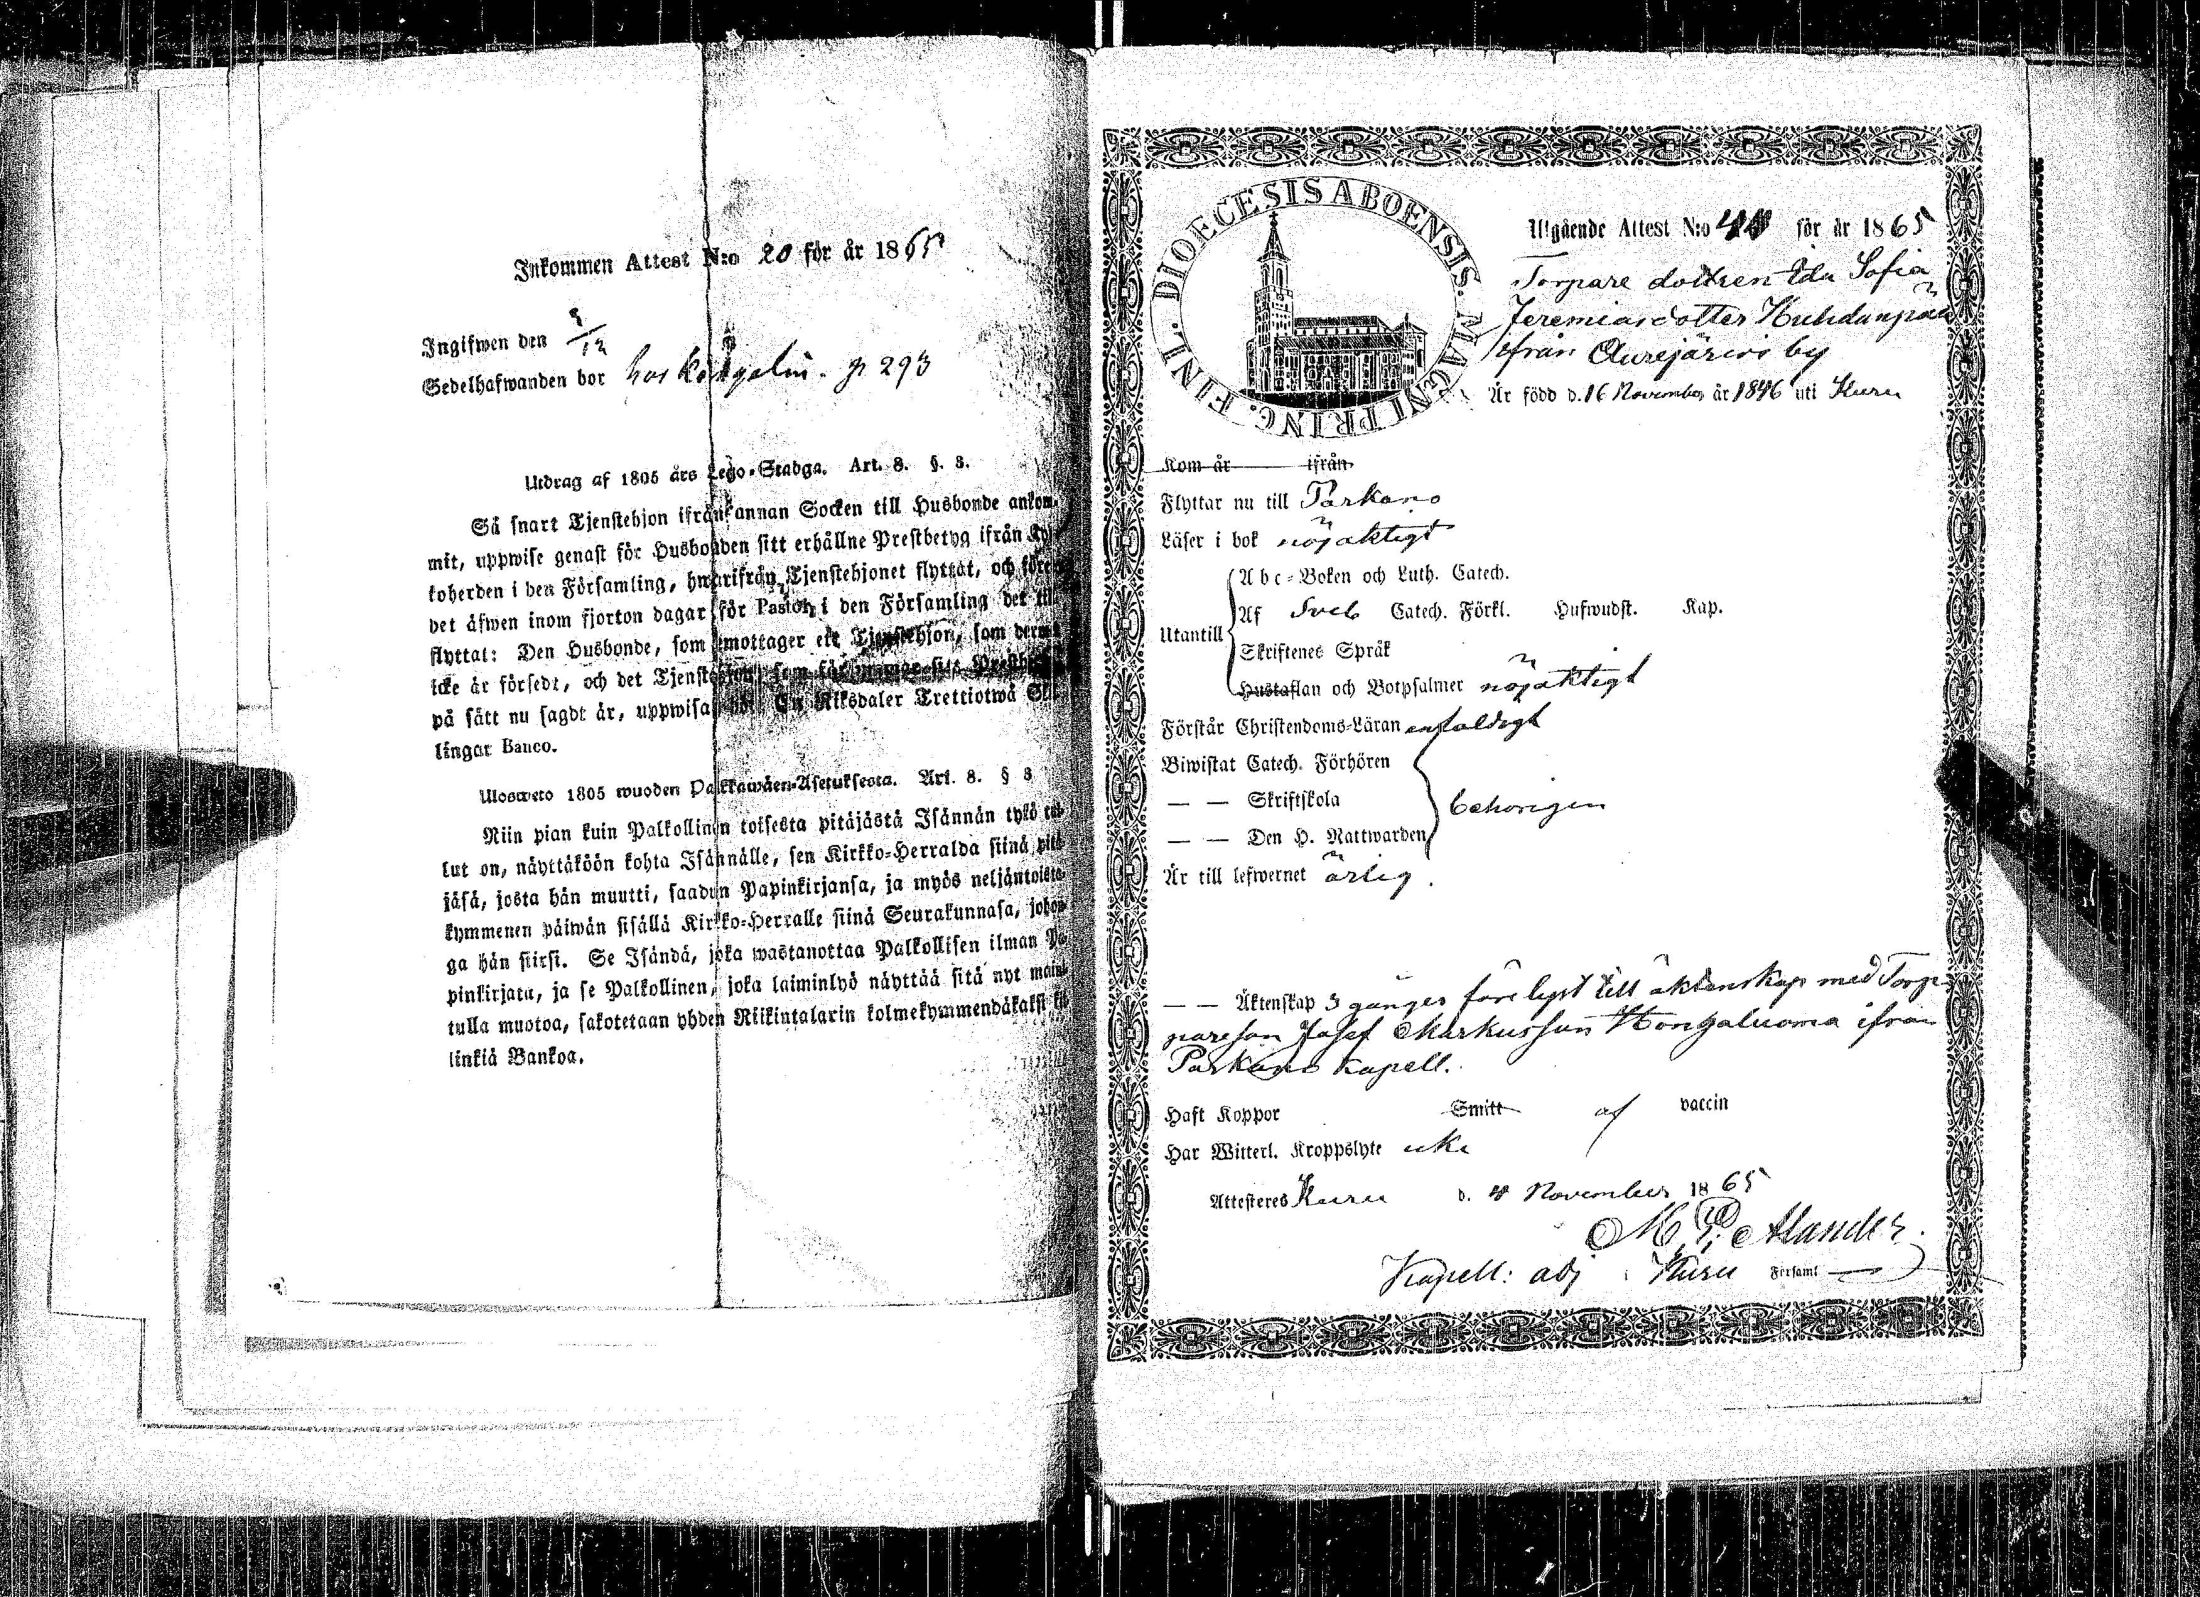 Inkommen Attest N:o 20 för år 1865
Ingifwen den 9/12
Sedelhafwanden bor hos p 293
Utdrag af 1805 års Lego-Stadga. Art. 8. §. 3.
Så snart Tjenstehjon ifrån annan Socken till Husbonde ankom-
mit, uppwise genast för Husbonden sitt erhållne Prestbetyg ifrån Kyr-
koherden i den Församling, hwarifrån Tjenstehjonet flyttat, och före
det äfwen inom fjorton dagar för Pastor i den Församling det till
flyttat: Den Husbonde, som emottager ett Tjenstehjon, som dermed
icke är försedt, och det Tjenstehjon, som
på sätt nu sagdt är, uppwisa, En Riksdaler Trettiotwå Skil-
lingar Banco.
Ulosweto 1805 wuoden Palkkawäen-Asetuksesta. Art. 8. § 3
Niin pian kuin Palkollinen toisesta pitäjästä Isännän tykö tul-
lut on, näyttäköön kohta Isännälle, sen Kirkko-Herralda siinä pitä-
jäsä, josta hän muutti, saadun Papinkirjansa, ja myös neljäntoista-
kymmenen päiwän sisällä Kirkko-Herralle siinä Seurakunnasa, johon-
ga hän siirsi. Se Isändä, joka wastanottaa Palkollisen ilman Pa-
pinkirjata, ja se Palkollinen, joka laiminlyö näyttää sitä nyt maini-
tulla muotoa, sakotetaan yhden Riikintalarin kolmekymmendäkaksi kil-
linkiä Bankoa.
DIOECESIS ABOENSIS. MAGNI PRINC. FINL.
Utgående Attest N:o för år 1865
Torpare dottren Ida Sofia
Jeremiasdotter Huhdanpää
ifrån Aurejärwi by
Är född d. 16 November år 1846 uti Kuru
Kom år ifrån
Flyttar nu till Parkano
Läser i bok nöjaktigt
Abc-Boken och Luth. Catech.
Af Sveb Catech. Förkl. Hufwudst. Kap.
Utantill
Skriftenes Språk
Hustaflan och Botpsalmer nöjaktigt
Förstår Christendoms-Läran enfaldigt
Biwistat Catech. Förhören
— — Skriftskola behörigen
— — Den H. Nattwarden
Är till lefwernet ärlig.
— — Äktenskap 3 gånger förelyst till äktenskap med Torp-
pareson Josef Markusson Hongaluoma ifrån
Parkano Kapell.
Haft Koppor Smitt af vaccin
Har Witterl. Kroppslyte icke
Attesteres Kuru d. 4 November 1865
M. Alander.
Kapell: adj i Kuru Församl